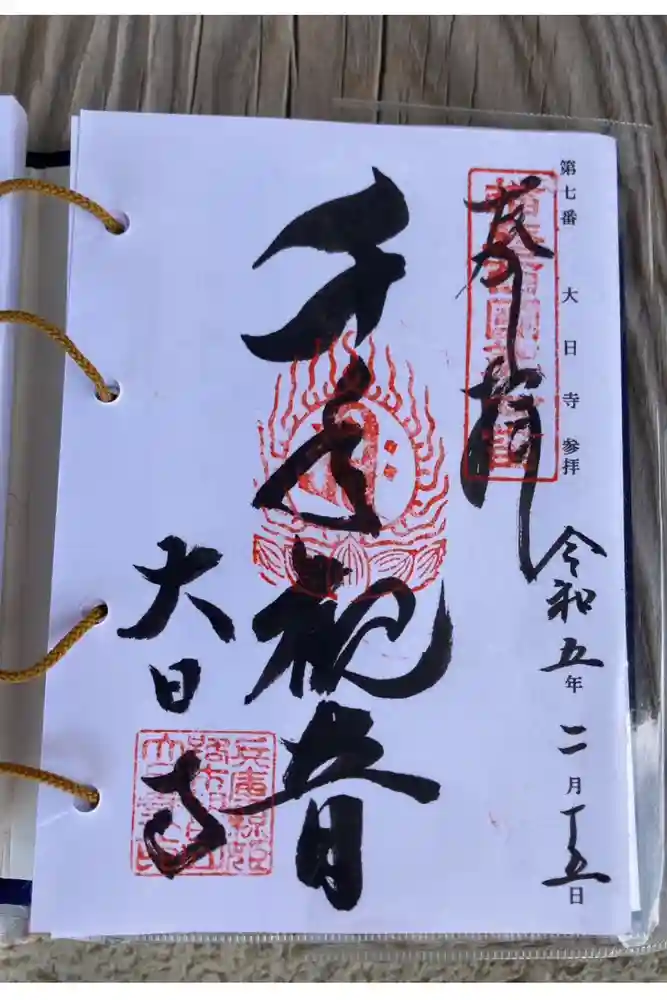 第七番 大日寺 参拝
令和五年二月十五日
奉拝
千手観音
大日寺